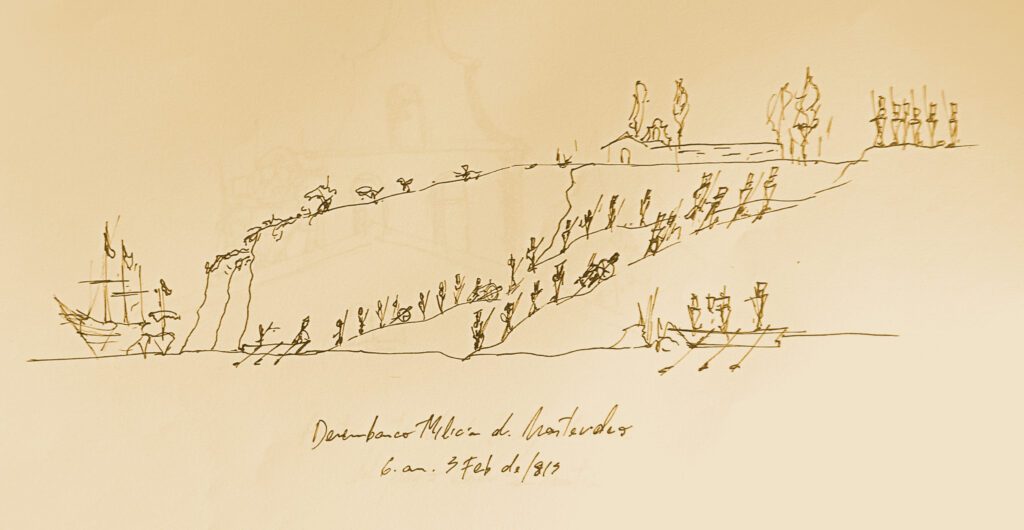 Desembarco Milicia d. Montevideo
6. am. 3 Feb de 1813